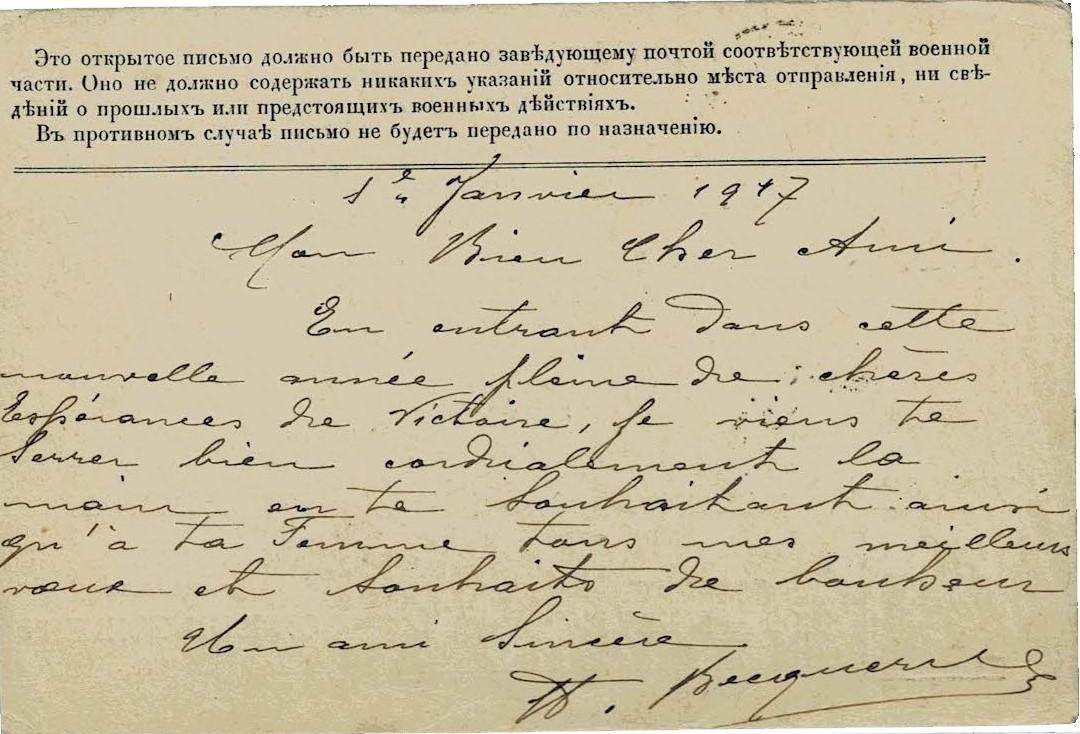 Это открытое письмо должно быть передано завѣдующему почтой соотвѣтствующей военной
части. Оно не должно содержать никакихъ указаній относительно мѣста отправленія, ни свѣ-
дѣній о прошлыхъ или предстоящихъ военныхъ дѣйствіяхъ.
Въ противномъ случаѣ письмо не будетъ передано по назначенію.
1e Janvier 1917
Mon Bien Cher Ami.
En entrant dans cette
nouvelle année pleine de chères
Espérances de Victoire, je viens te
Serrer bien cordialement la
main en te Souhaitant ainsi
qu'à ta Femme tous mes meilleurs
vœux et Souhaits de bonheur
Un ami Sincère